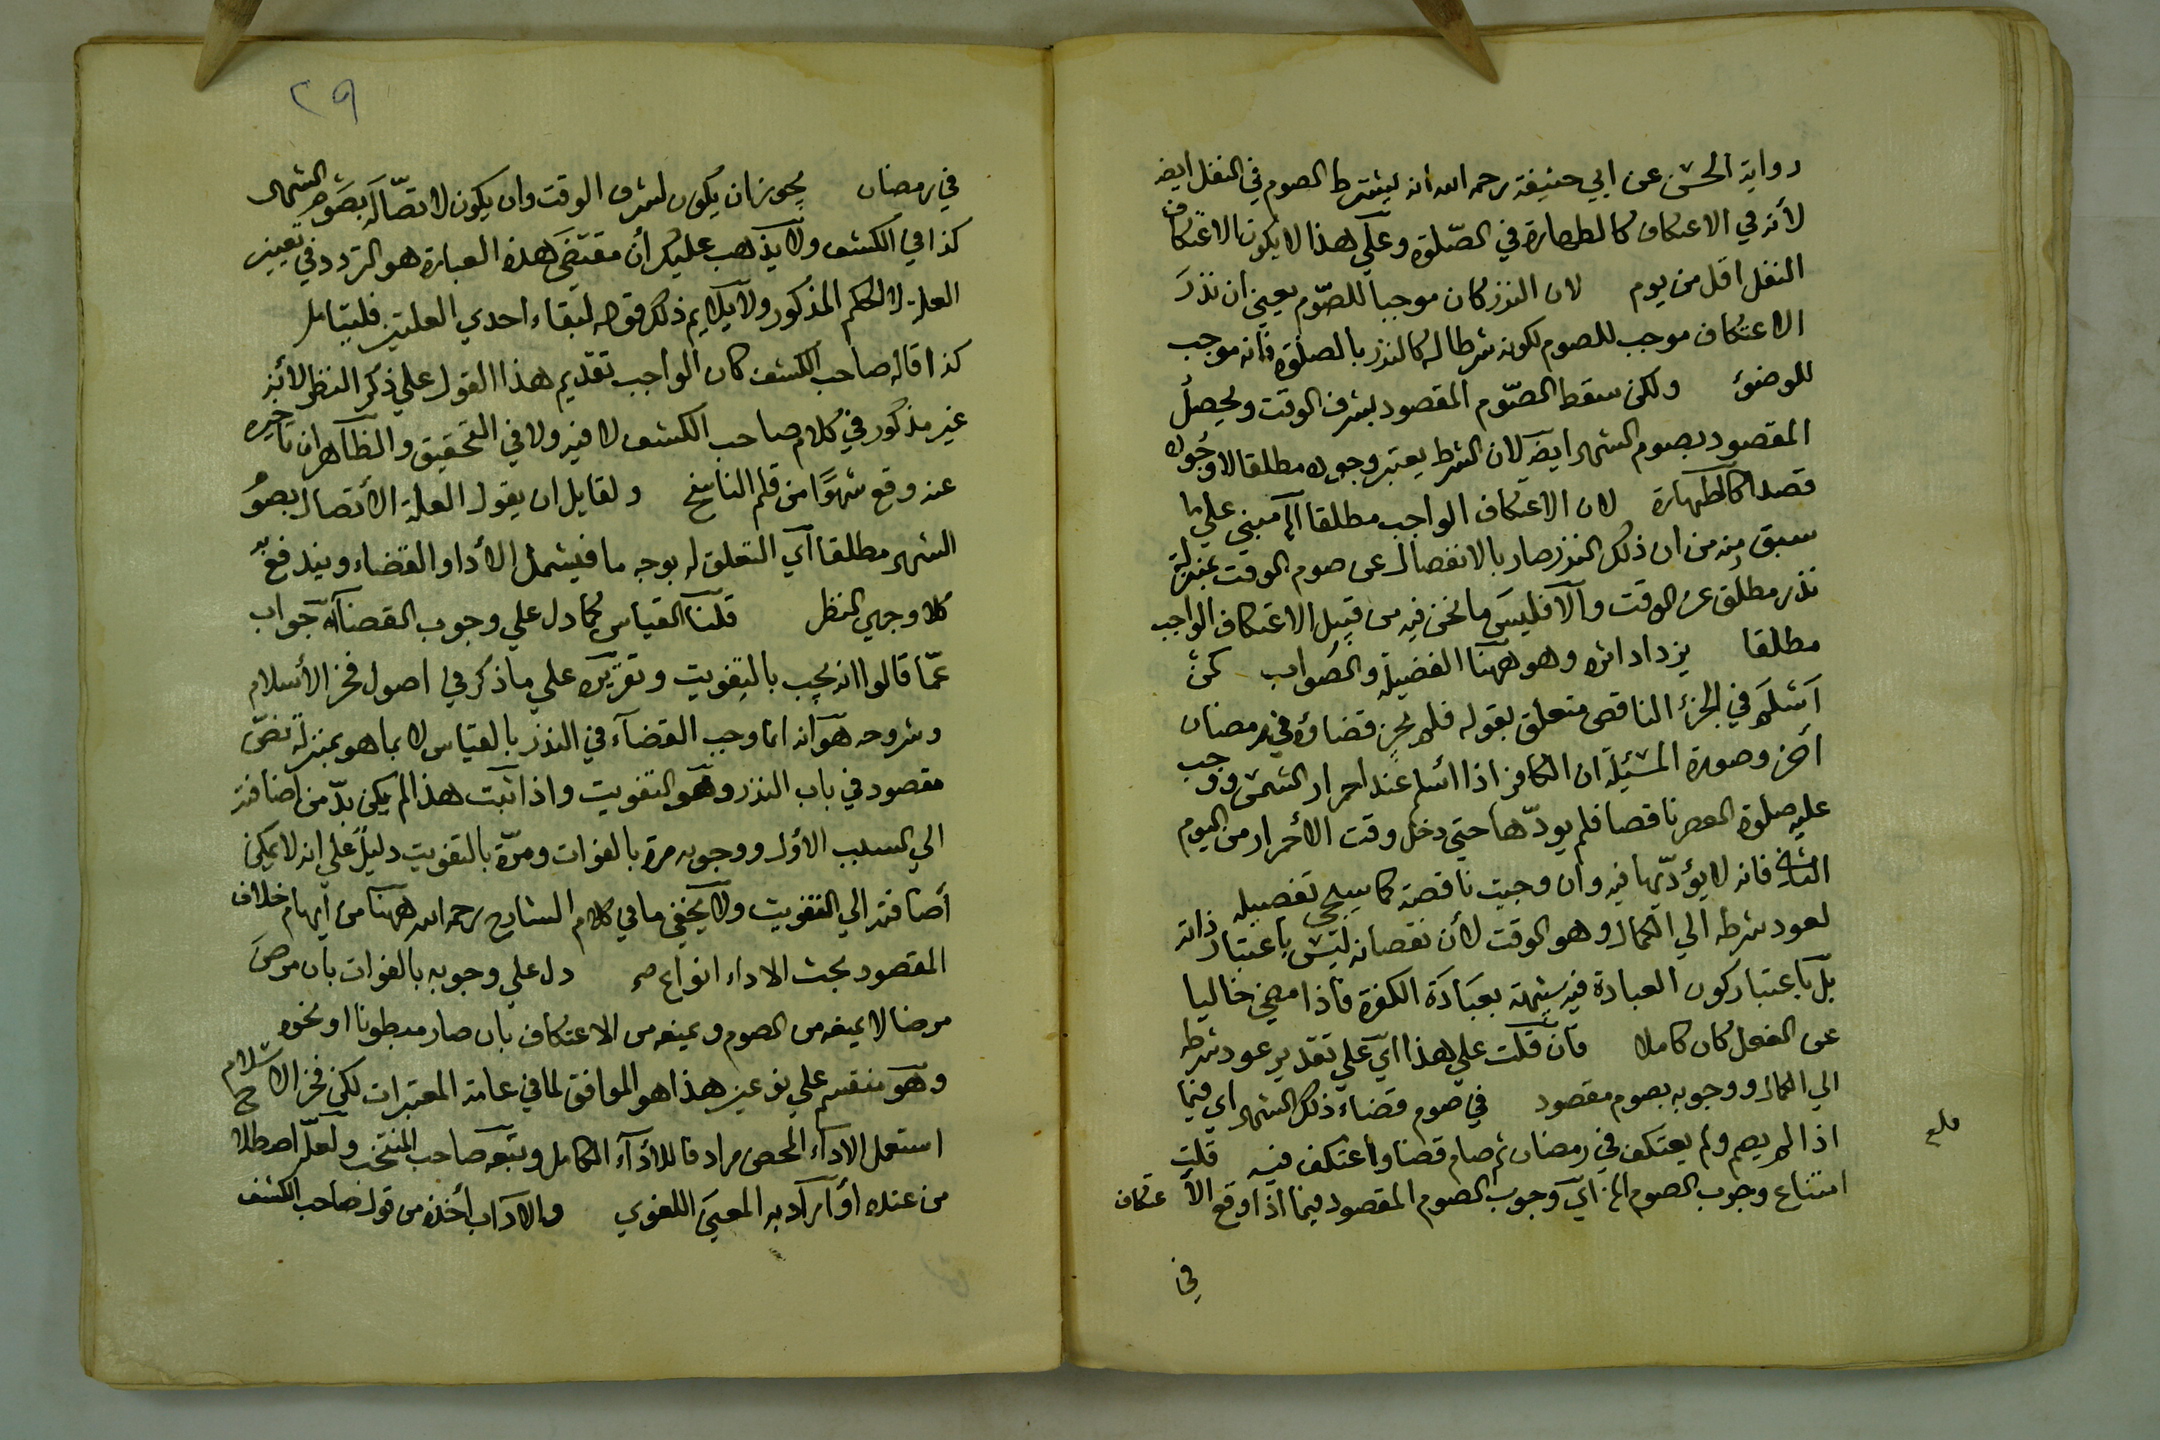 رواية الحسن عن ابي حنيفة رحمه الله انه يشترط الصوم في النفل ايضا
لأنه في الاعتكاف كالطهارة في الصّلوة وعلى هذا لا يكون الاعتكاف
النفل اقل من يوم لان النذر كان موجبا للصّوم يعني ان نذرَ
الاعتكاف موجب للصوم لكونه شرطا له كالنذر بالصلوة فانه موجب
للوضوء ولكن سقط الصّوم المقصود بشرف الوقت ويحصلُ
المقصود بصوم الشهر ايضا لان الشرط يعتبر وجوده مطلقا لا وجُوده
قصدا كالطهارة لان الاعتكاف الواجب مطلقا الخ مبني علي ما
سبق منه من ان ذلك النذر صار بالانفصال عن صوم الوقت بمنزلة
نذر مطلق عن الوقت والّا فليسَ ما نحن فيه من قبيل الاعتكاف الواجب
مطلقا يزداد اثره وهو ههنا الفضيلة والصّواب كمن
اَسْلَم في الجزء الناقص متعلق بقوله فلم يجزِ قضاؤه في رمضان
آخر وصورة المسئلة ان الكافر اذا اسلم عند احمرار الشمس ووجب
عليه صلوة العصر ناقصا فلم يودّها حتي دخل وقت الأحمرار من اليوم
الثاني فانه لا يؤدّيها فيه وان وجبت ناقصة كما سيجي تفصيله
لعود شرطه الي الكمال وهو الوقت لأن نقصانه ليس باعتبار ذاته
بل باعتبار كون العبادة فيه شبهة بعبَادَة الكفرة فاذا مضى خاليا
عن الفعل كان كاملا فان قلت علي هذا ايّ علي تقدير عود شرطه
الي الكمال ووجوبه بصوم مقصود في صوم قضاء ذلك الشهر اي فيما
اذا لم يصم ولم يعتكف في رمضان ثم صام قضا واعتكف فيه قلت
امتناع وجوب الصوم الخ ايّ وجوب الصوم المقصود فيما اذا وقع الاعتكاف
في
٢٩
في رمضان يجوز ان يكون لشرف الوقت وان يكون لاتصّاله بصَوم الشهر
كذا في الكشف ولا يذهب عليك أن مقتضى هذه العبارة هو التردد في تعيين
العلة لا الحكم المذكور ولا يلايم ذلك قوله لبقاء احدي العلتين فليتامل
كذا قاله صاحب الكشف كان الواجب تقديم هذا القول علي ذكر النظر لأنه
غير مذكور في كلام صاحب الكشف لا فيه ولا في التحقيق والظاهر ان تأخيره
عنه وقع سَهوًا من قلم الناسخ ولقايل ان يقول العلة الأتصال بصومُ
الشهر مطلقا اَي التعلق له بوجه ما فيشمل الأدا والقضاء ويندفع به
كلا وجهي النظر قلنا القياس كما دل علي وجوب القضا الخ جواب
عمّا قالوا انه يجب بالتفويت وتقريره علي ما ذكر في اصول فخر الأسلام
وشروحه هو انه انما وجب القضآء في النذر بالقياس لا بما هو بمنزلة نصّ
مقصود في باب النذر وهو التفويت واذا ثبت هذا لم يكن بدّ من اضافته
الي السبب الأول ووجوبه مرة بالفوات ومرّة بالتفويت دليلٌ علي انه لا يمكن
أضافته الي التفويت ولا يخفي ما في كلام الشارح رحمه الله ههنا من ايهام خلاف
المقصود بحث الاداء انواع دل علي وجوبه بالفوات بان مرضَ
مرضا لا يمنعه من الصوم ويمنعه من الاعتكاف بان صار مبطونًا او نحوه
وهو منقسم علي نوعين هذا هو الموافق لما في عامة المعتبرات لكن فخر الاسلام
استعمل الاداء المحض مرادفا للأدآء الكامل وتبعه صاحب المنتخب ولعلّه اصطلاح
من عنده أو اَراد به المعنَي اللغوي والاداب أخذه من قول صاحب الكشف